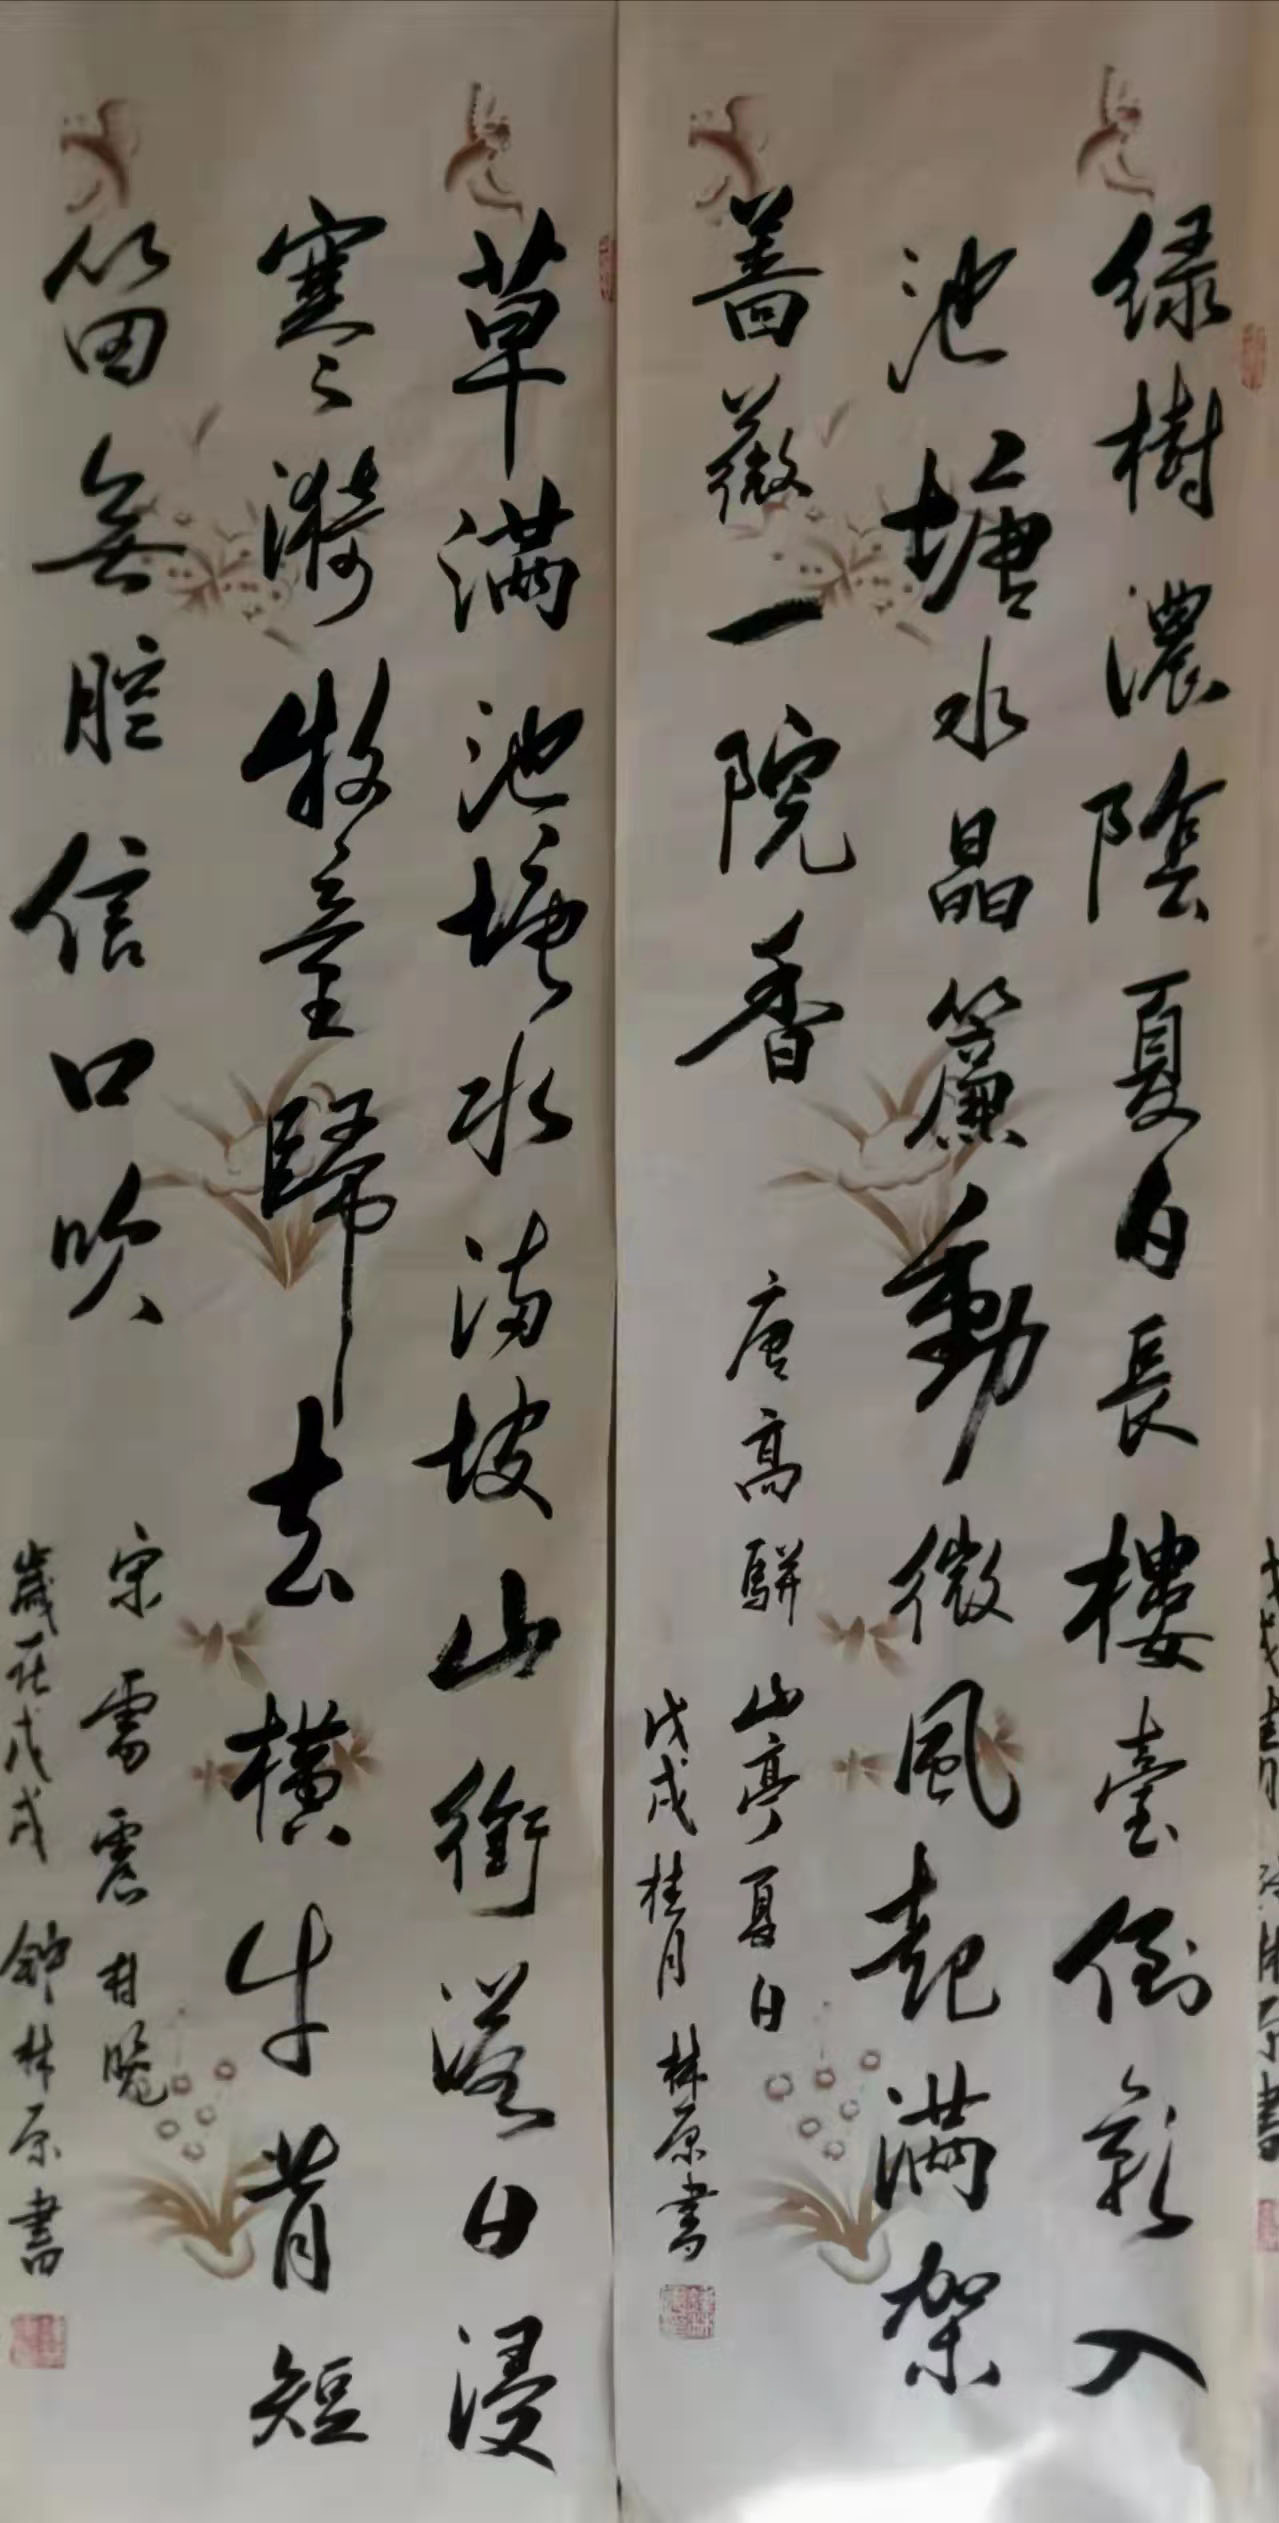 绿樹濃陰夏日長樓臺倒影入
池塘水晶簾動微風起滿架
薔薇一院香
唐高駢 山亭夏日
戊戌桂月 林原書
草滿池塘水满坡山銜落日浸
寒〻漪牧童歸去橫牛背短
笛無腔信口吹
宋雷震村晚
歲在戊戌 鈡林原書